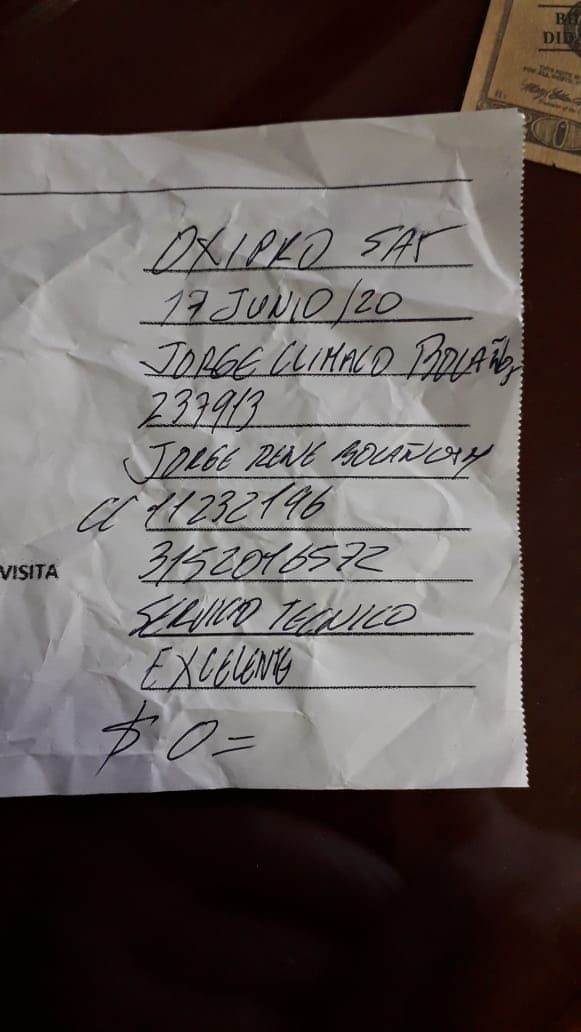 BI
DID
OXIPRO SAS
17 JUNIO/20
JORGE CLIMACO BOLAÑOS
237913
JORGE RENE
CC 11232196
VISITA 3152016572
SERVICIO TECNICO
EXCELENTE
$ 0=